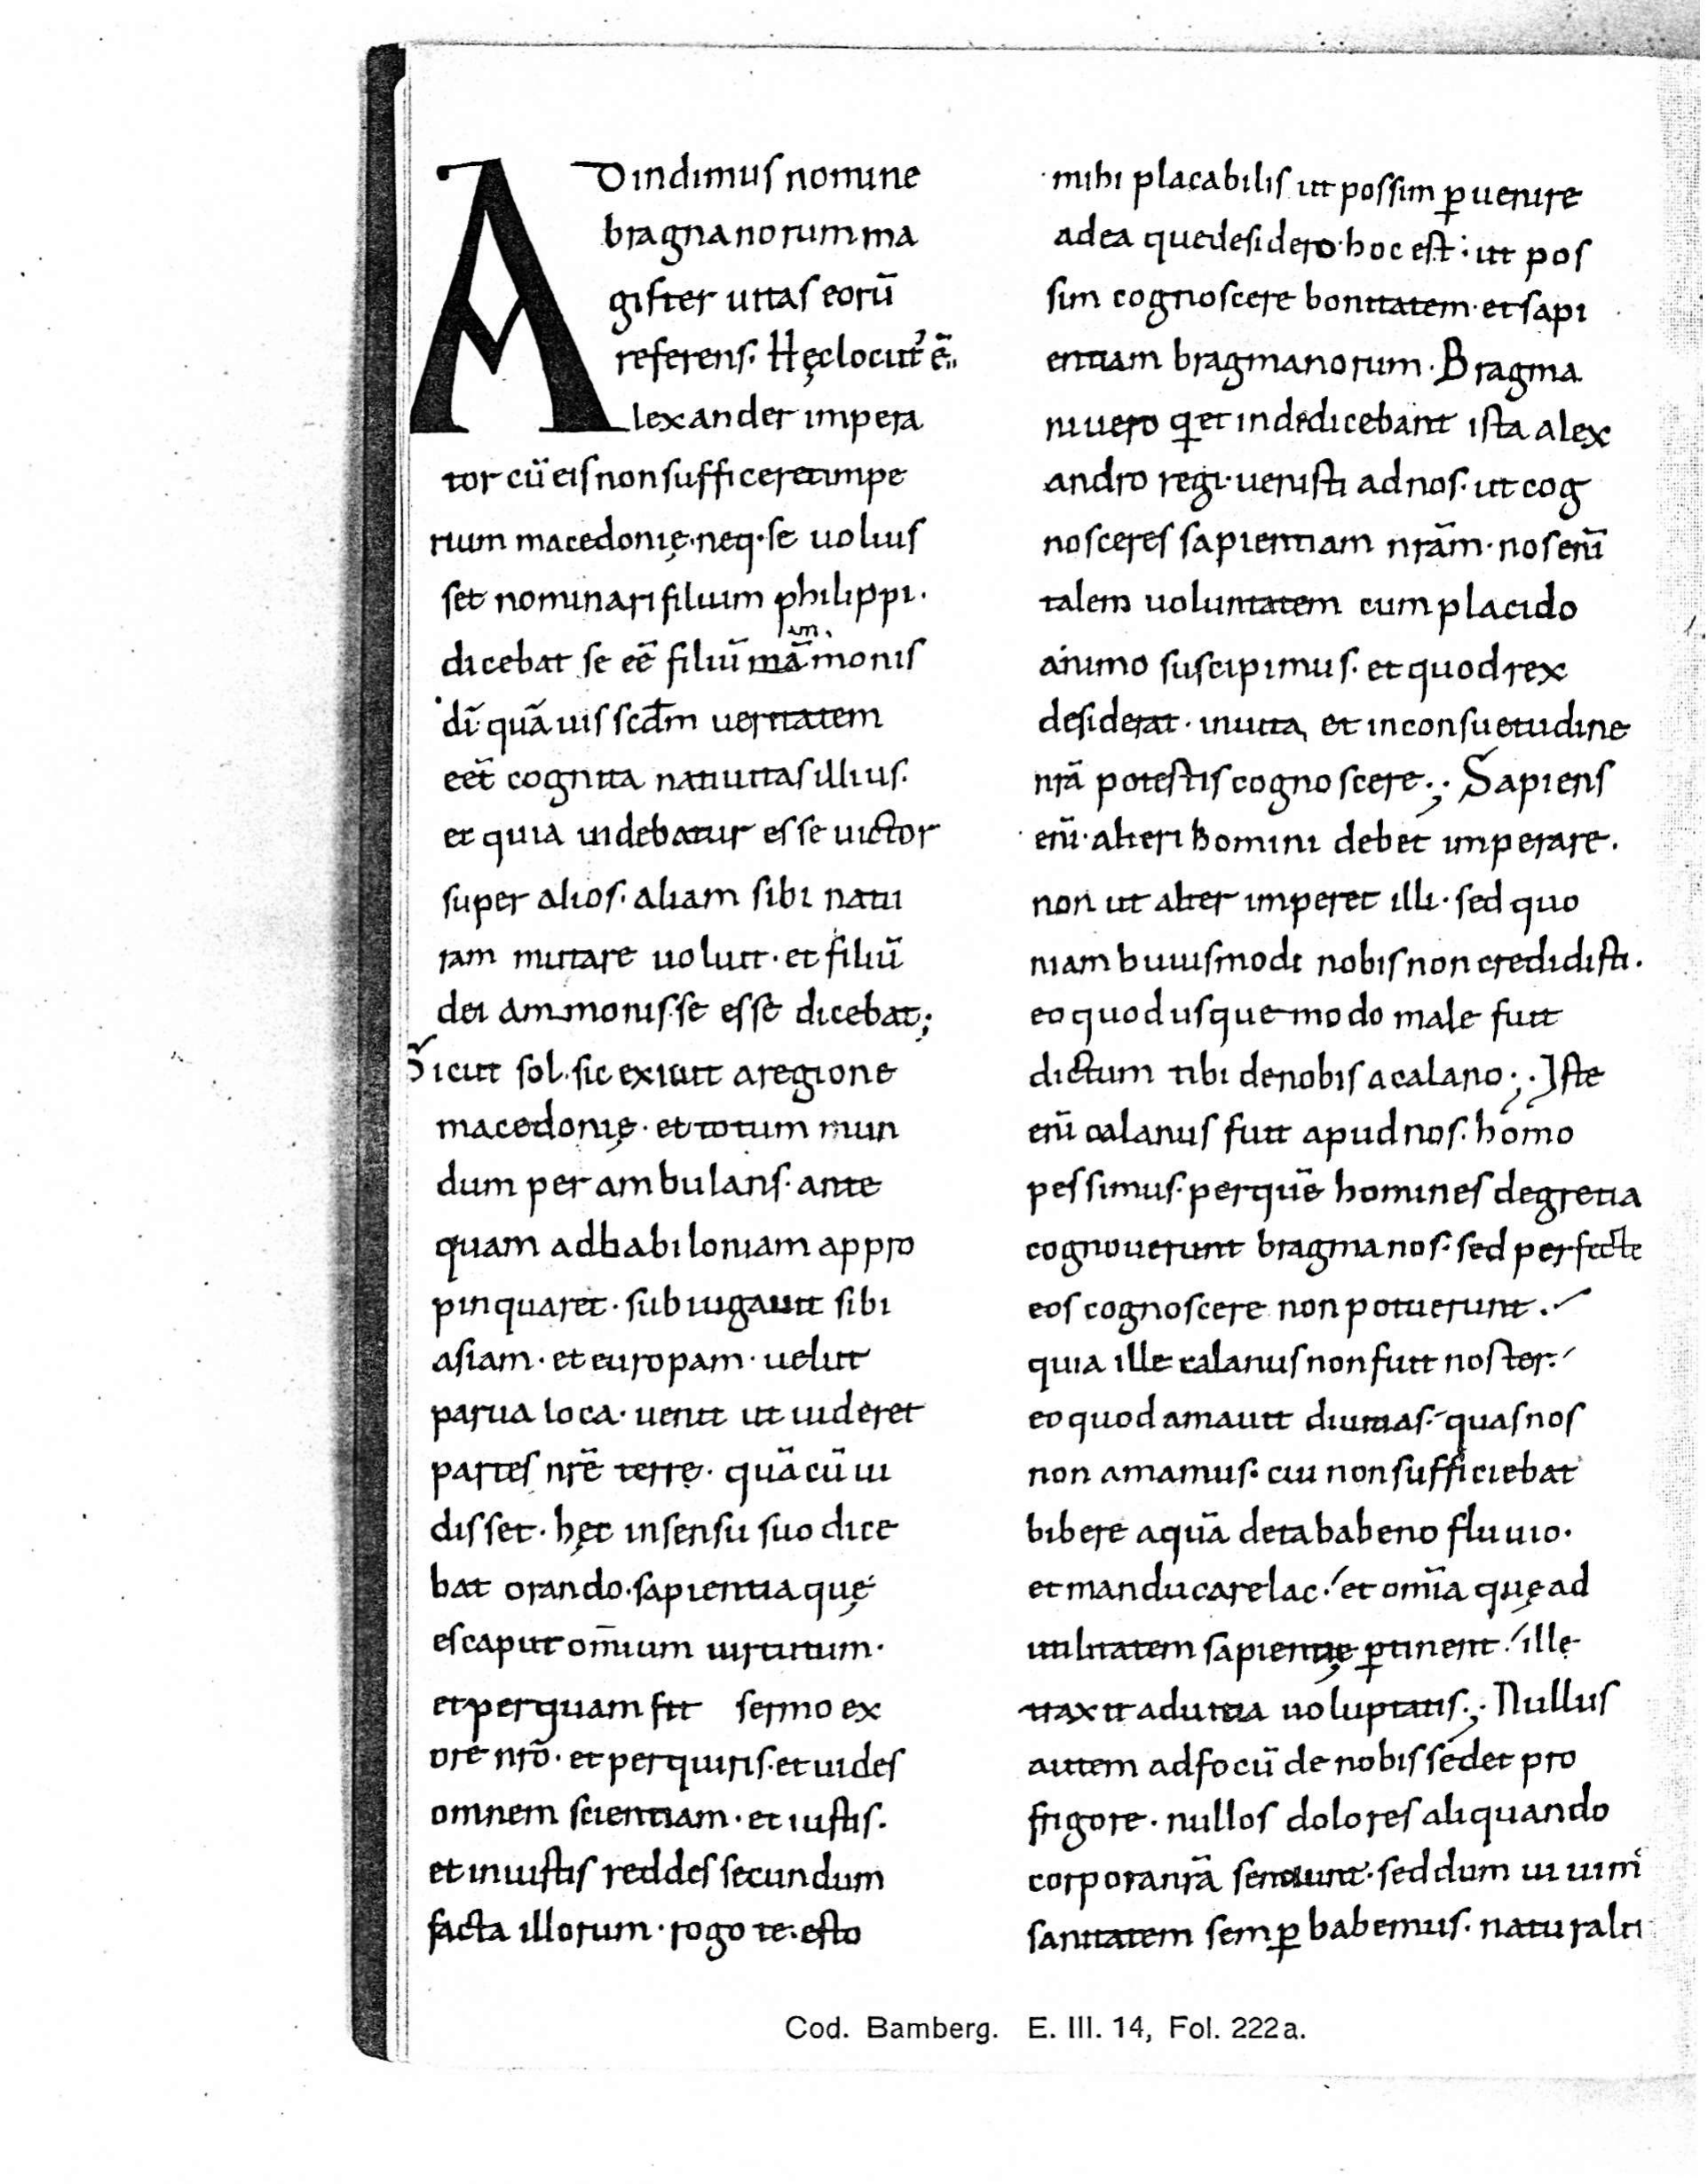 Dindimus nomine
bragnanorum ma
gister uitas eorū
referens. Hęc locut᾿ ē.,,
Alexander impera
tor cū eis non sufficeret impe
rium macedonię. neq· se uoluis
set nominari filium philippi.
im.
dicebat se eē filiū mā monis
dī· quā uis scdm ueritatem
eēt cognita natiuitas illius.
et quia uidebatur esse uictor
super alios. aliam sibi natu
ram mutare uoluit. et filiū
dei ammonis. se esse dicebat;
Sicut sol. sic exiuit a regione
macedonię. et totum mun
dum per ambulans. ante
quam ad babiloniam appro
pinquaret. subiugauit sibi
asiam. et europam. uelut
parua loca. uenit ut uideret
partes nrē terrę. quā cū ui
disset. hęc in sensu suo dice
bat orando. sapientia quę
es caput omīum uirtutum.
et per quam fit sermo ex
ore nrō. et per quiris. et uides
omnem scientiam. et iustis.
et iniustis reddes secundum
facta illorum. rogo te. esto
mihi placabilis ut possim ꝑuenire
ad ea que desidero. hoc est: ut pos
sim cognoscere bonitatem. et sapi
entiam bragmanorum. Bragma
ni uero ꝗ et inde dicebant ista alex
andro regi. uenisti ad nos. ut cog
nosceres sapientiam nrām. nos enī
talem uoluntatem cum placido
animo suscipimus. et quod rex
desiderat. in uita, et in consuetudine
nrā potestis cognoscere;. Sapiens
enī. alteri homini debet imperare.
non ut alter imperet illi. sed quo
niam huiusmodi nobis non credidisti.
eo quod usque modo male fuit
dictum tibi de nobis a calano;. Iste
enī calanus fuit apud nos. homo
pessimus. per quē homines de gretia
cognouerunt bragmanos. sed perfecte
eos cognoscere non potuerunt.
quia ille calanus non fuit noster.
eo quod amauit diuitias. quas nos
non amamus. cui non sufficiebat
bibere aquā de tababeno fluuio.
et manducare lac. et omīa quę ad
utilitatem sapientię ꝑtinent. ille
traxit ad uitia uoluptatis;. Nullus
autem ad focū de nobis sedet pro
frigore. nullos dolores aliquando
corpora nrā sentiunt. sed dum uiuim᾿
sanitatem semꝑ habemus. naturali
Cod. Bamberg. E. III. 14, Fol. 222a.